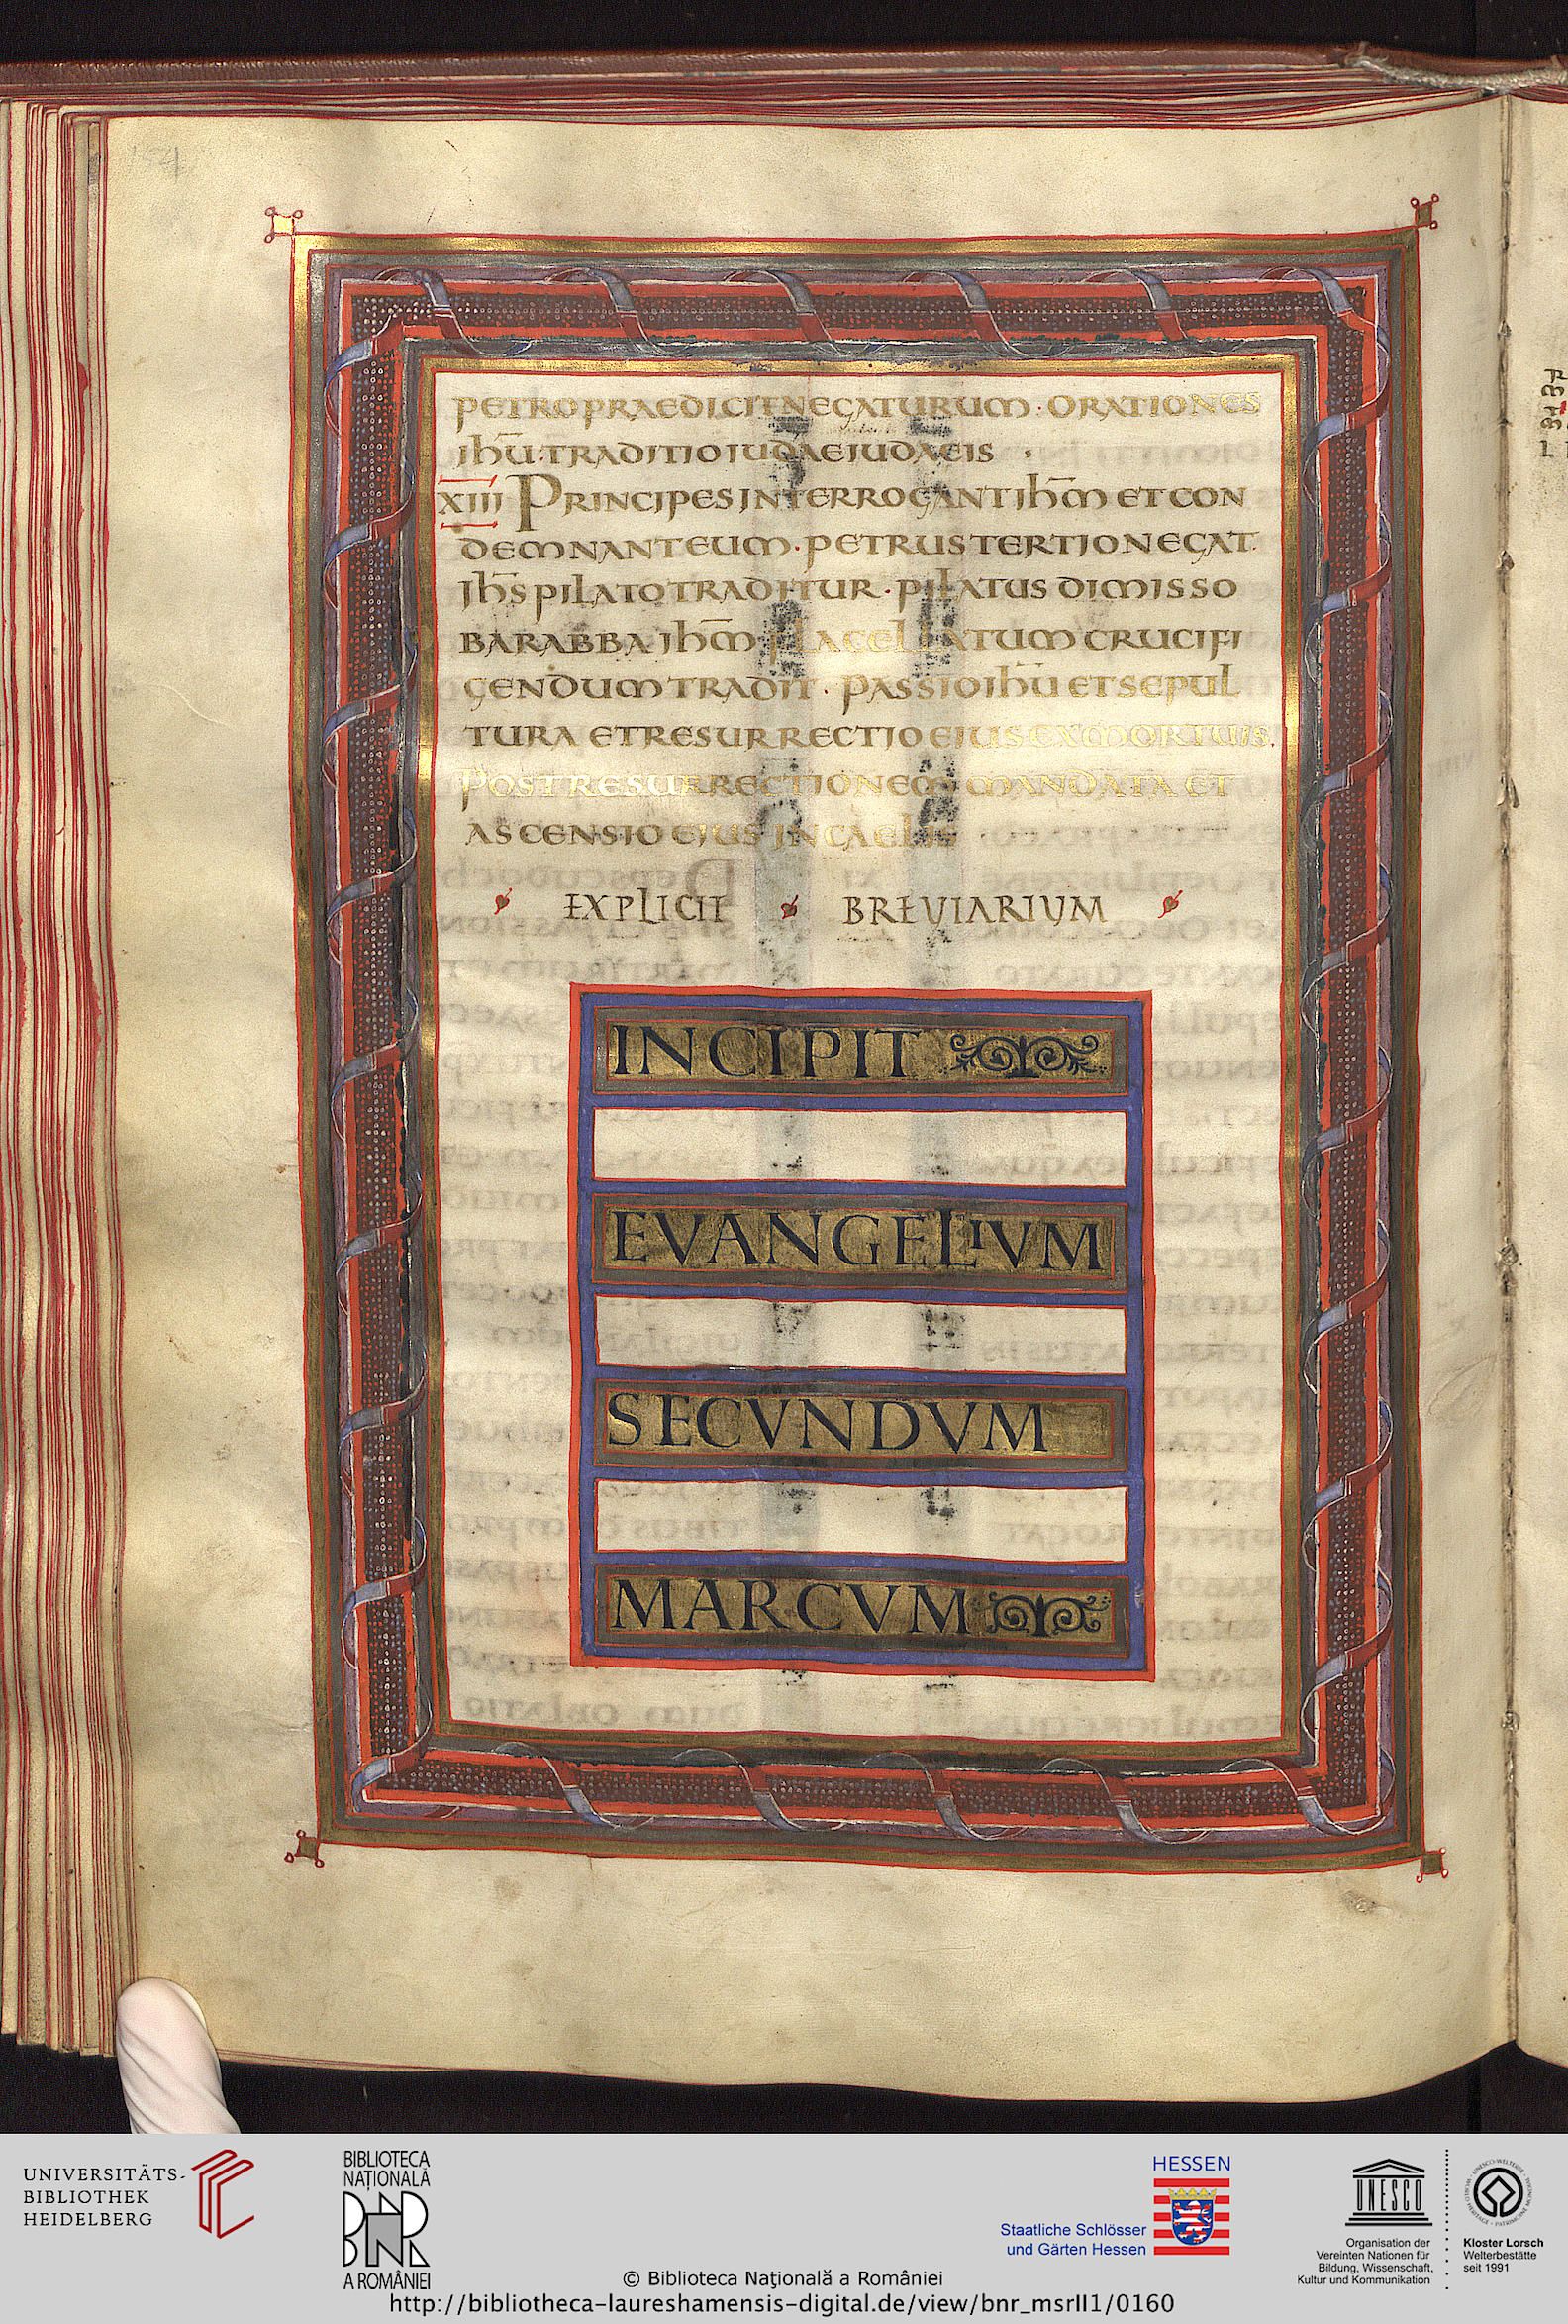 154
PETRO PRAEDICIT NEGATURUM · ORATIONES
IHŪ · TRADITIO IUDAE IUDAEIS ·
XIII PRINCIPES INTERROGANT IHM̄ ET CON
DEMNANT EUM · PETRUS TERTIO NEGAT ·
IHS̄ PILATO TRADITUR · PILATUS DIMISSO
BARABBA IHM̄ FLAGELLATUM CRUCIFI
GENDUM TRADIT · PASSIO IHŪ ET SEPUL
TURA ET RESURRECTIO EIUS EX MORTUIS ·
POST RESURRECTIONEM MANDATA ET
ASCENSIO EIUS IN CAELIS ·
EXPLICIT BREVIARIUM
INCIPIT
EVANGELIVM
SECVNDVM
MARCVM
UNIVERSITÄTS-
BIBLIOTHEK
HEIDELBERG
BIBLIOTECA
NAȚIONALĂ
BNR
A ROMÂNIEI
HESSEN
Staatliche Schlösser
und Gärten Hessen
UNESCO
Organisation der
Vereinten Nationen für
Bildung, Wissenschaft,
Kultur und Kommunikation
Kloster Lorsch
Welterbestätte
seit 1991
© Biblioteca Naţională a României
http://bibliotheca-laureshamensis-digital.de/view/bnr_msrII1/0160